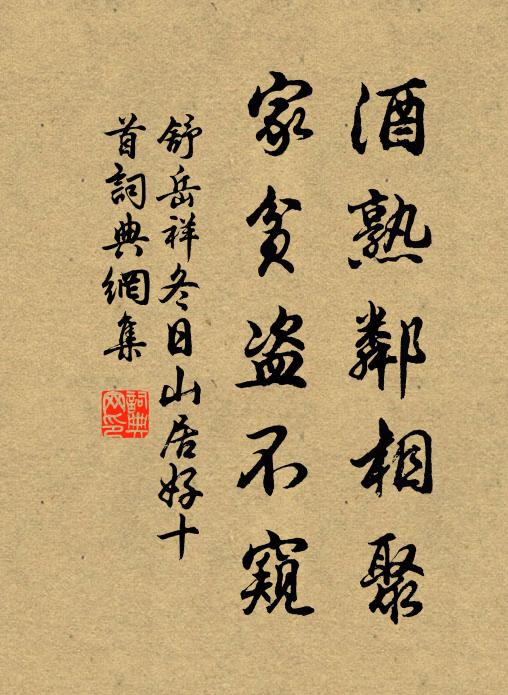 酒熟鄰相聚
家貧盜不窺
舒岳祥冬日山居好十
首詞典網集
詞典
网印